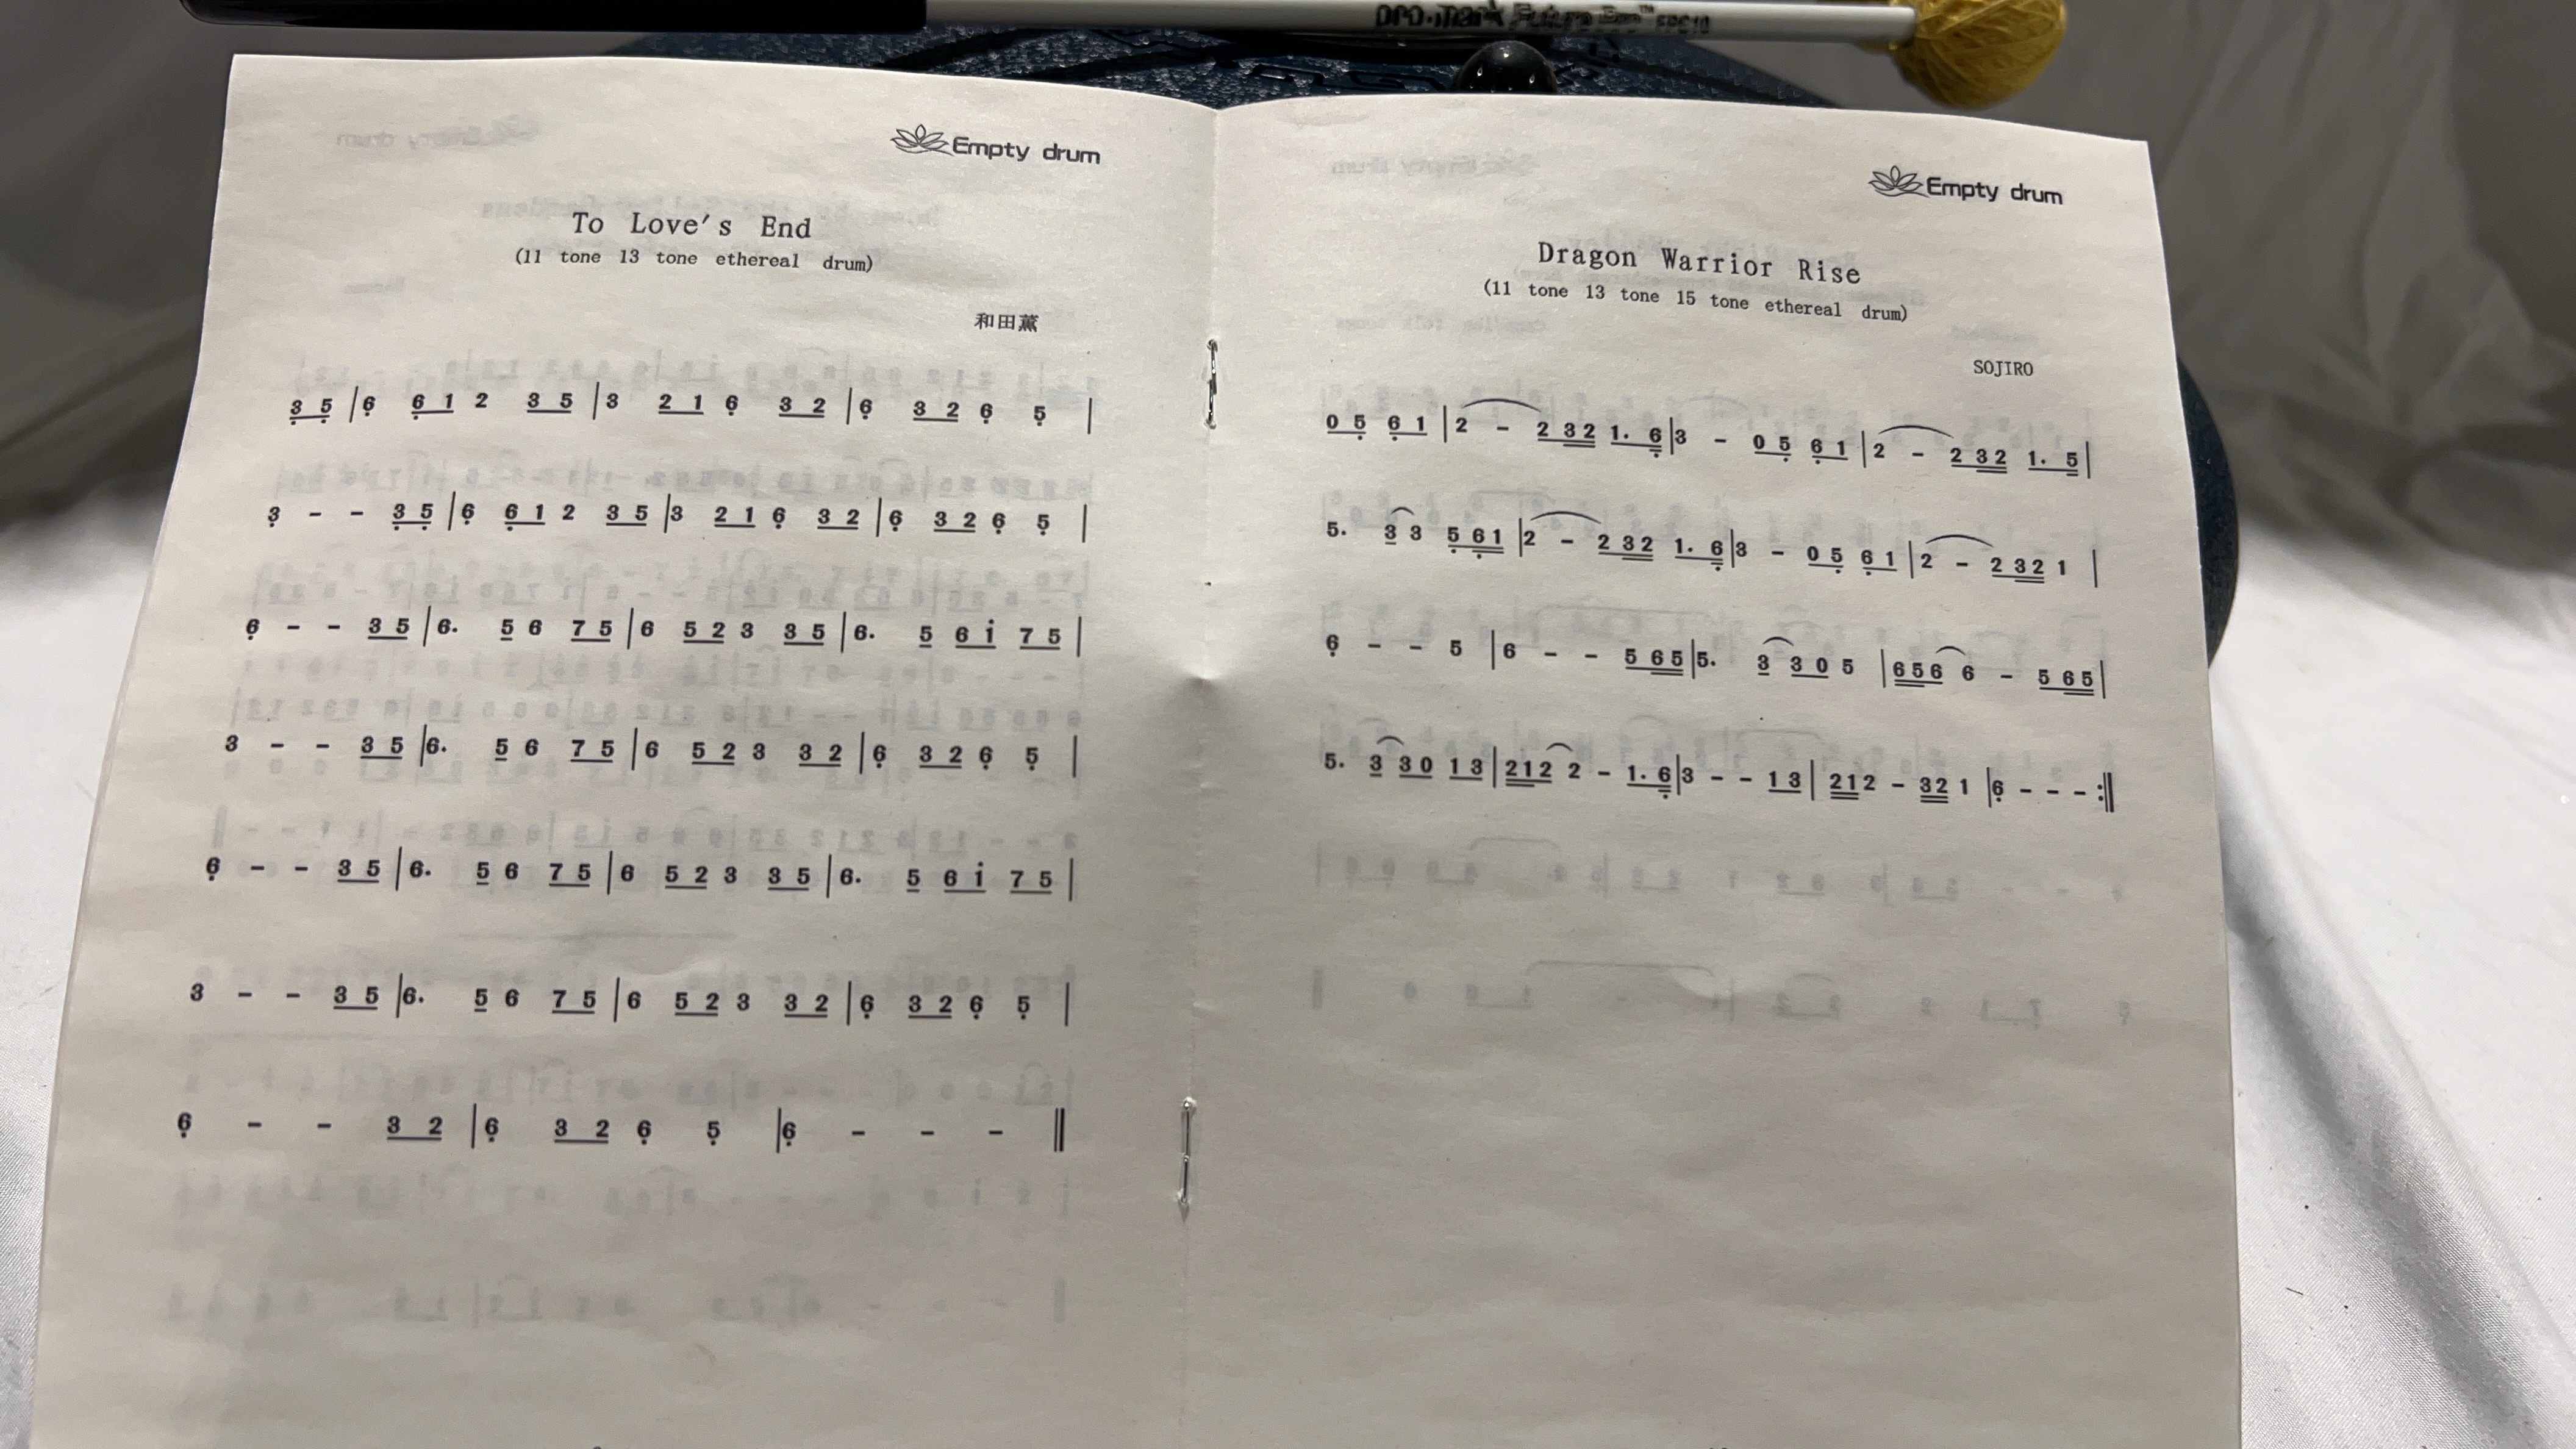 pro·mark
Empty drum
To Love's End
(11 tone 13 tone ethereal drum)
和田薰
3̣ 5̣ | 6̣ 6̣ 1 2 3 5 | 3 2 1 6̣ 3 2 | 6̣ 3 2 6̣ 5̣ |
3̣ - - 3̣ 5̣ | 6̣ 6̣ 1 2 3 5 | 3 2 1 6̣ 3 2 | 6̣ 3 2 6̣ 5̣ |
6̣ - - 3 5 | 6. 5 6 7 5 | 6 5 2 3 3 5 | 6. 5 6 1̇ 7 5 |
3 - - 3 5 | 6. 5 6 7 5 | 6 5 2 3 3 2 | 6̣ 3 2 6̣ 5̣ |
6̣ - - 3 5 | 6. 5 6 7 5 | 6 5 2 3 3 5 | 6. 5 6 1̇ 7 5 |
3 - - 3 5 | 6. 5 6 7 5 | 6 5 2 3 3 2 | 6̣ 3 2 6̣ 5̣ |
6̣ - - 3 2 | 6̣ 3 2 6̣ 5̣ | 6̣ - - - ‖
Empty drum
Dragon Warrior Rise
(11 tone 13 tone 15 tone ethereal drum)
SOJIRO
0 5̣ 6̣ 1 | 2 - 2 3 2 1. 6̣ | 3 - 0 5̣ 6̣ 1 | 2 - 2 3 2 1. 5 |
5. 3 3 5̣ 6̣ 1 | 2 - 2 3 2 1. 6̣ | 3 - 0 5̣ 6̣ 1 | 2 - 2 3 2 1 |
6̣ - - 5 | 6 - - 5 6 5 | 5. 3 3 0 5 | 6 5 6 6 - 5 6 5 |
5. 3 3 0 1 3 | 2 1 2 2 - 1. 6̣ | 3 - - 1 3 | 2 1 2 - 3 2 1 | 6̣ - - - :‖